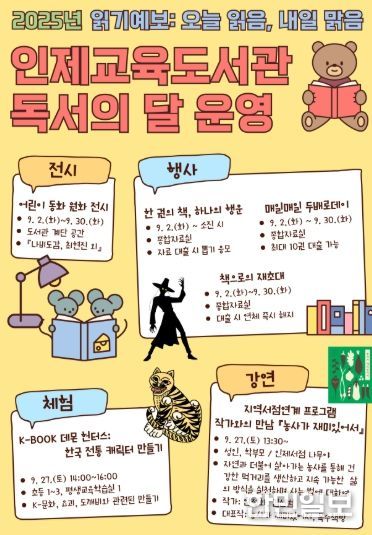 2025년 읽기예보: 오늘 읽음, 내일 맑음
인제교육도서관
독서의 달 운영
전시
어린이 동화 원화 전시
• 9. 2.(화)~9. 30.(화)
• 도서관 계단 공간
• 『나비도감, 최현진 외』
행사
한 권의 책, 하나의 행운
• 9. 2.(화) ~ 소진 시
• 종합자료실
• 자료 대출 시 뽑기 응모
매일매일 두배로데이
• 9. 2.(화) ~ 9. 30.(화)
• 종합자료실
• 최대 10권 대출 가능
책으로의 재초대
• 9. 2.(화)~9. 30.(화)
• 종합자료실
• 대출 시 연체 즉시 해지
체험
K-BOOK 데몬 헌터스:
한국 전통 캐릭터 만들기
• 9. 27.(토) 14:00~16:00
• 초등 1~3, 평생교육학습실 1
• K-문화, 요괴, 도깨비와 관련된 만들기
강연
지역서점연계 프로그램
작가와의 만남 『농사가 재미있어서』
• 9. 27.(토) 13:30~
• 성인, 학부모 / 인제서점 나무이
• 자연과 더불어 살아가는 농사를 통해 건
강한 먹거리를 생산하고 지속 가능한 삶
의 방식을 실천하며 사는 법에 대하여
• 작가:
• 대표작: